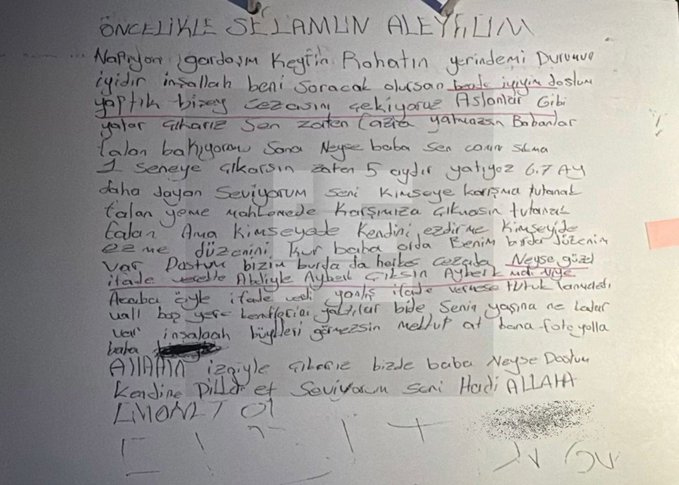 ÖNCELİKLE SELAMUN ALEYKÜM
Napıyon gardaşım Keyfin Rahatın yerindemi Durumun
iyidir inşallah beni Soracak olursan bende iyiyim dostum
yaptık bizey cezasını çekiyoruz Aslanlar Gibi
yatar çıkarız Sen zaten fazla yatmazsın Babanlar
falan bakıyorum Sana Neyse baba sen canın sıkma
1 seneye çıkarsın zaten 5 aydır yatıyoz 6.7 AY
daha dayan Seviyorum seni Kimseye karışma tutanak
falan yeme mahkemede karşımıza çıkmasın tutanak
falan Ama kimseyede kendini ezdirme kimseyide
ezme düzenini kur baba orda Benim burda düzenim
var Dostum bizim burda da herkes cezada Neyse güzel
ifade verdte Abliyle Ayberk çıksın Ayberk mdi niye
Acaba öyle ifade verdi yanlış ifade vermese tutuklanmazdı
vall boş yere yaktılar bide Senin yaşına ne kadar
var inşalaah büyükleri görmezsin mektup at bana foto yolla
baba
Allahın izniyle çıkarız bizde baba Neyse Dostum
Kendine Dikkat et Seviyorum seni Hadi ALLAHA
EMANET Ol